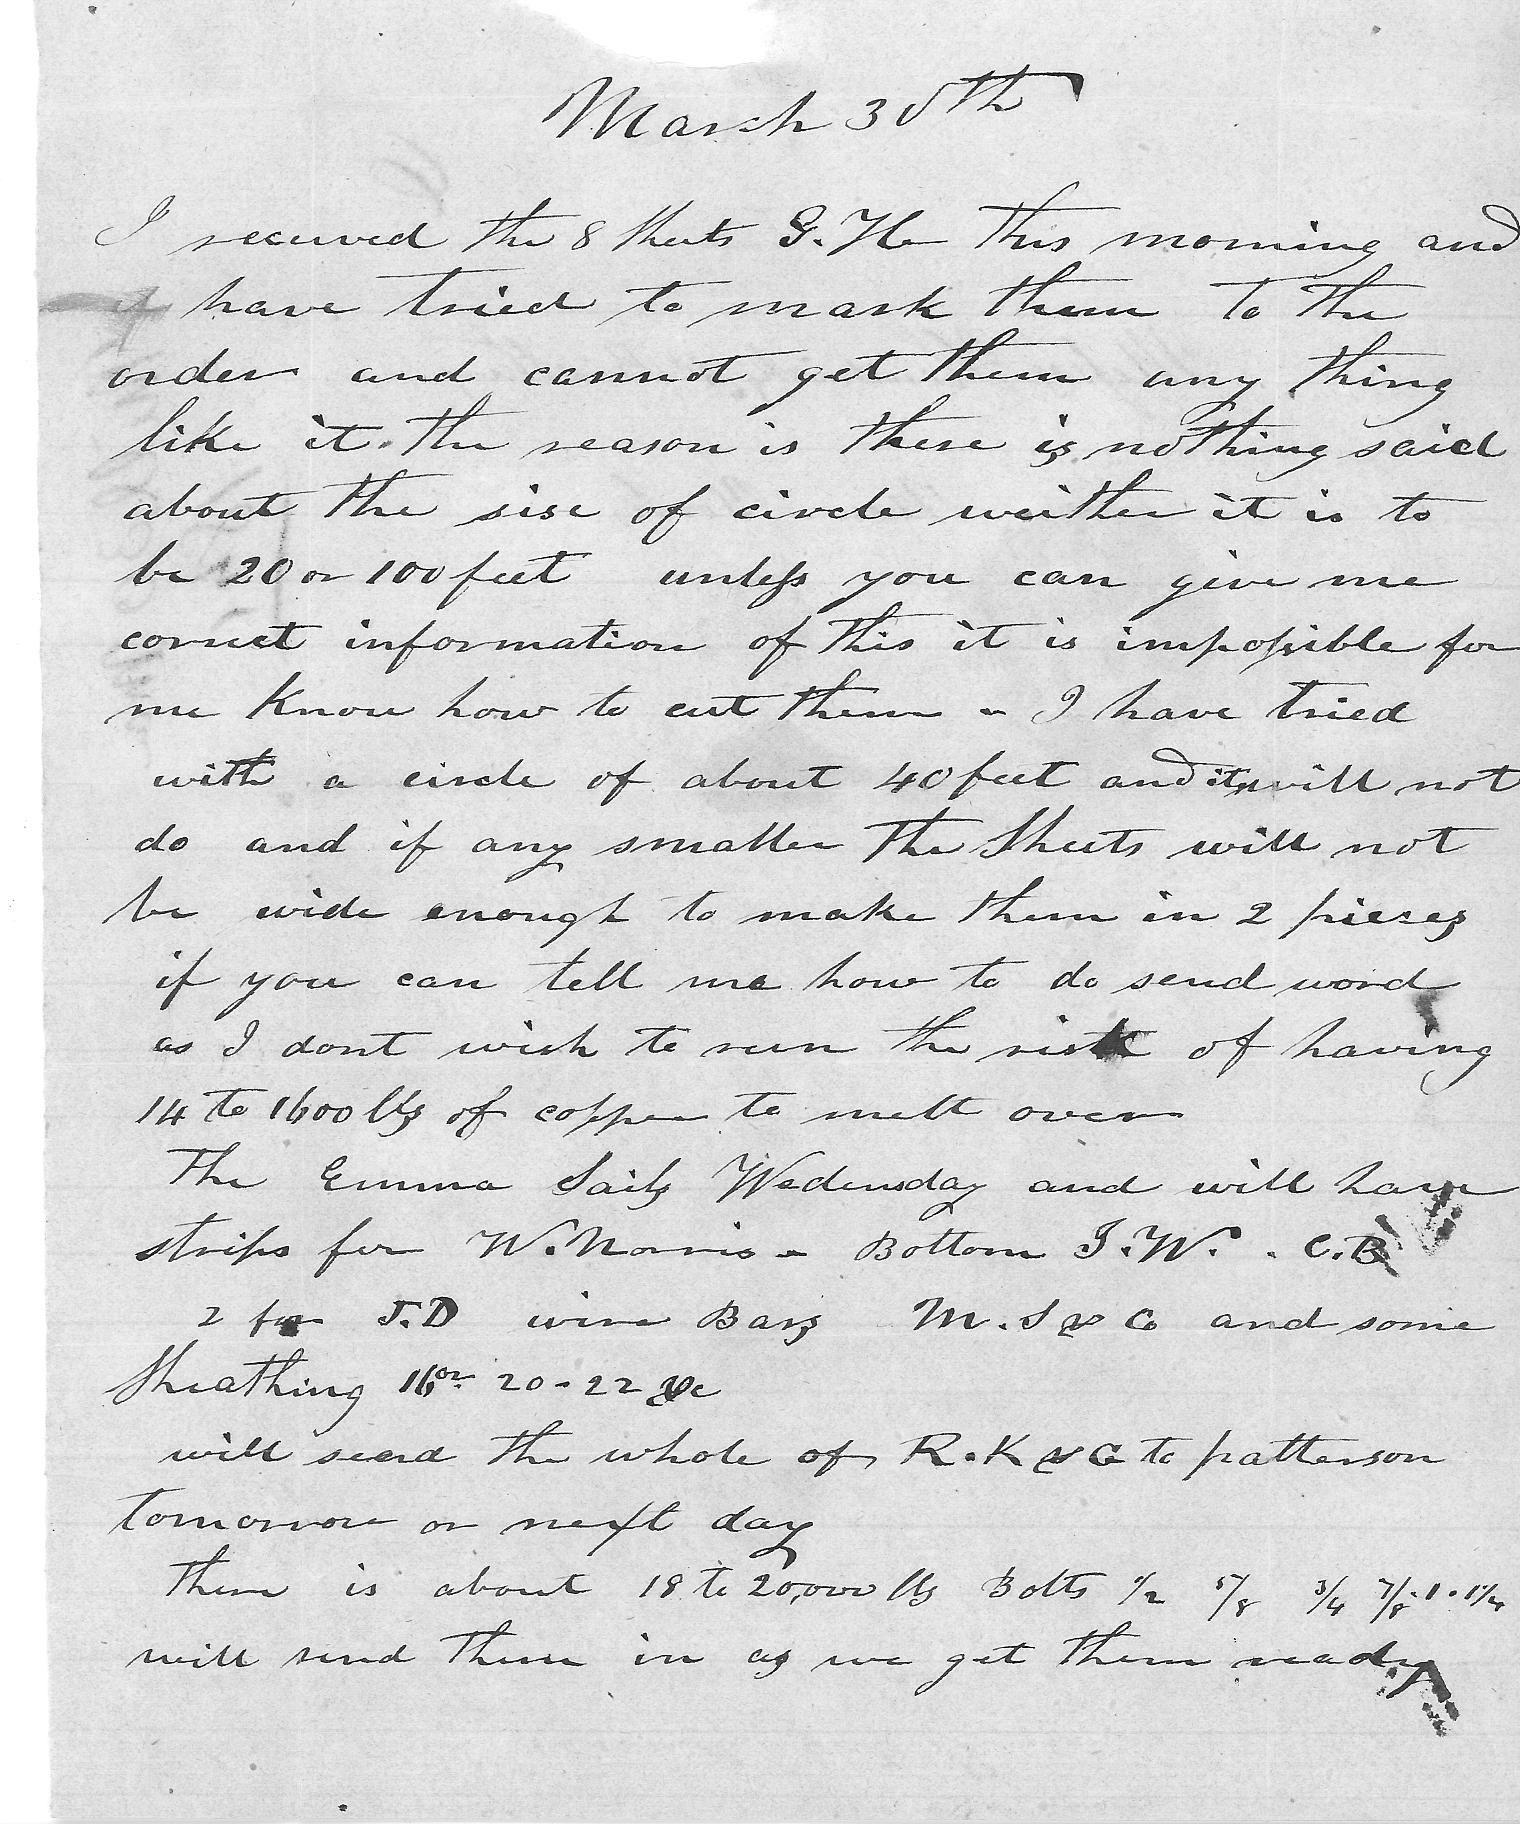 March 30th
I received the 8 Sheets G. H this morning and
I have tried to mark them to the
order and cannot get them any thing
like it. the reason is there is nothing said
about the sise of circle weither it is to
be 20 or 100 feet unless you can give me
correct information of this it is impossible for
me Know how to cut them - I have tried
with a circle of about 40 feet and it will not
do and if any smaller the Sheets will not
be wide enough to make them in 2 pieces
if you can tell me how to do send word
as I dont wish to run the risk of having
14 to 1600 lbs of copper to melt over
The Emma Sails Wednesday and will have
strips for W. Norris - Bottom I. W. . C. B
2 for J. D wire Bars M. S & Co and some
Sheathing 16 oz 20 - 22 &c
will send the whole of R. K & Co to patterson
tomorrow or next day
there is about 18 to 20,000 lbs Bolts 1/2 5/8 3/4 7/8 . 1 . 1 1/4
will send them in as we get them ready